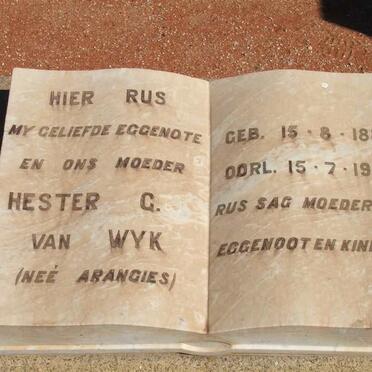 HIER RUS
MY GELIEFDE EGGENOTE
EN ONS MOEDER
HESTER C.
VAN WYK
(NEÉ ARANGIES)
GEB. 15.8.18
OORL. 15.7.19
RUS SAG MOEDER
EGGENOOT EN KIN